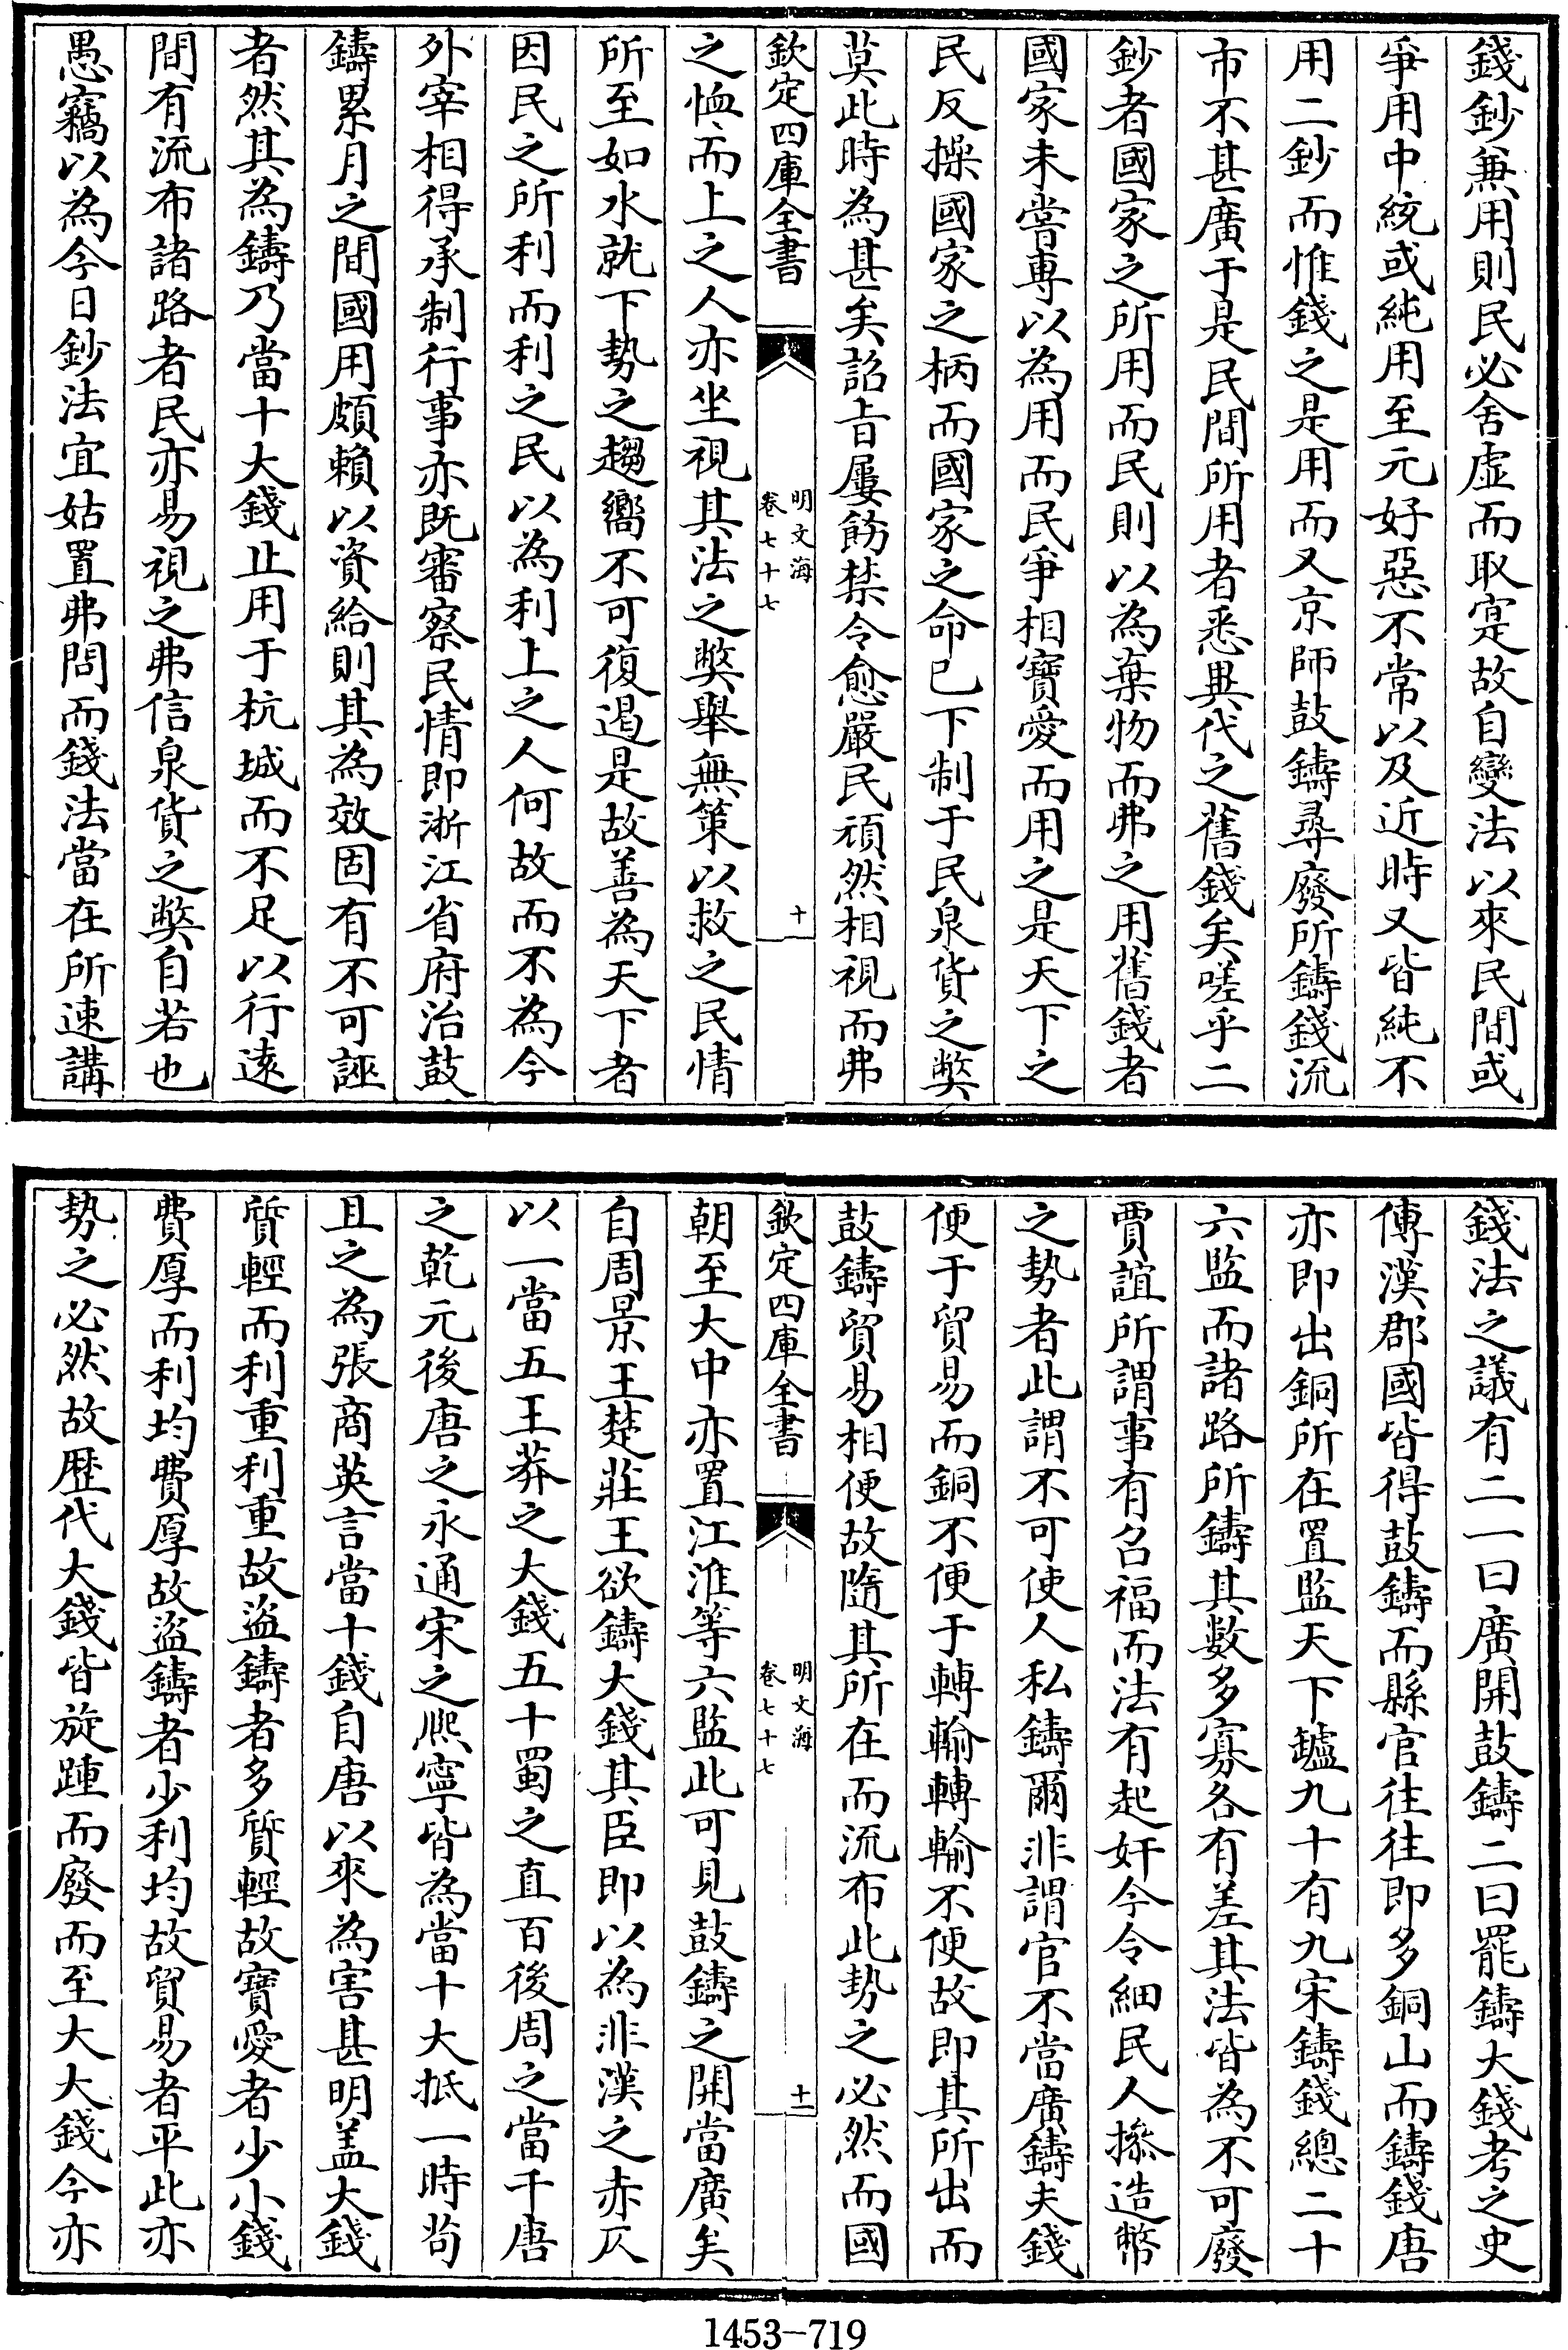 錢鈔兼用則民必舍虛而取寔故自變法以來民間或
爭用中統或純用至元好惡不常以及近時又皆純不
用二鈔而惟錢之是用而又京師鼓鑄尋廢所鑄錢流
市不甚廣于是民間所用者悉異代之舊錢矣嗟乎二
鈔者國家之所用而民則以為棄物而弗之用舊錢者
國家未嘗專以為用而民爭相寶愛而用之是天下之
民反操國家之柄而國家之命已下制于民泉貨之弊
莫此時為甚矣詔旨屢飭禁令愈嚴民頑然相視而弗
欽定四庫全書
明文海
卷七十七
十
之恤而上之人亦坐視其法之弊舉無策以救之民情
所至如水就下勢之趨嚮不可復遏是故善為天下者
因民之所利而利之民以為利上之人何故而不為今
外宰相得承制行事亦既審察民情即浙江省府治鼓
鑄累月之間國用頗賴以資給則其為效固有不可誣
者然其為鑄乃當十大錢止用于杭城而不足以行遠
間有流布諸路者民亦易視之弗信泉貨之弊自若也
愚竊以為今日鈔法宜姑置弗問而錢法當在所速講
錢法之議有二一曰廣開鼓鑄二曰罷鑄大錢考之史
傳漢郡國皆得鼓鑄而縣官往往即多銅山而鑄錢唐
亦即出銅所在置監天下鑪九十有九宋鑄錢總二十
六監而諸路所鑄其數多寡各有差其法皆為不可廢
賈誼所謂事有召福而法有起奸今令細民人操造幣
之勢者此謂不可使人私鑄爾非謂官不當廣鑄夫錢
便于貿易而銅不便于轉輸轉輸不便故即其所出而
鼓鑄貿易相便故隨其所在而流布此勢之必然而國
欽定四庫全書
明文海
卷七十七
十一
朝至大中亦置江淮等六監此可見鼓鑄之開當廣矣
自周景王楚莊王欲鑄大錢其臣即以為非漢之赤仄
以一當五王莽之大錢五十蜀之直百後周之當千唐
之乾元後唐之永通宋之熙寧皆為當十大抵一時茍
且之為張商英言當十錢自唐以來為害甚明盖大錢
質輕而利重利重故盜鑄者多質輕故寶愛者少小錢
費厚而利均費厚故盜鑄者少利均故貿易者平此亦
勢之必然故歷代大錢皆旋踵而廢而至大大錢今亦
1453-719